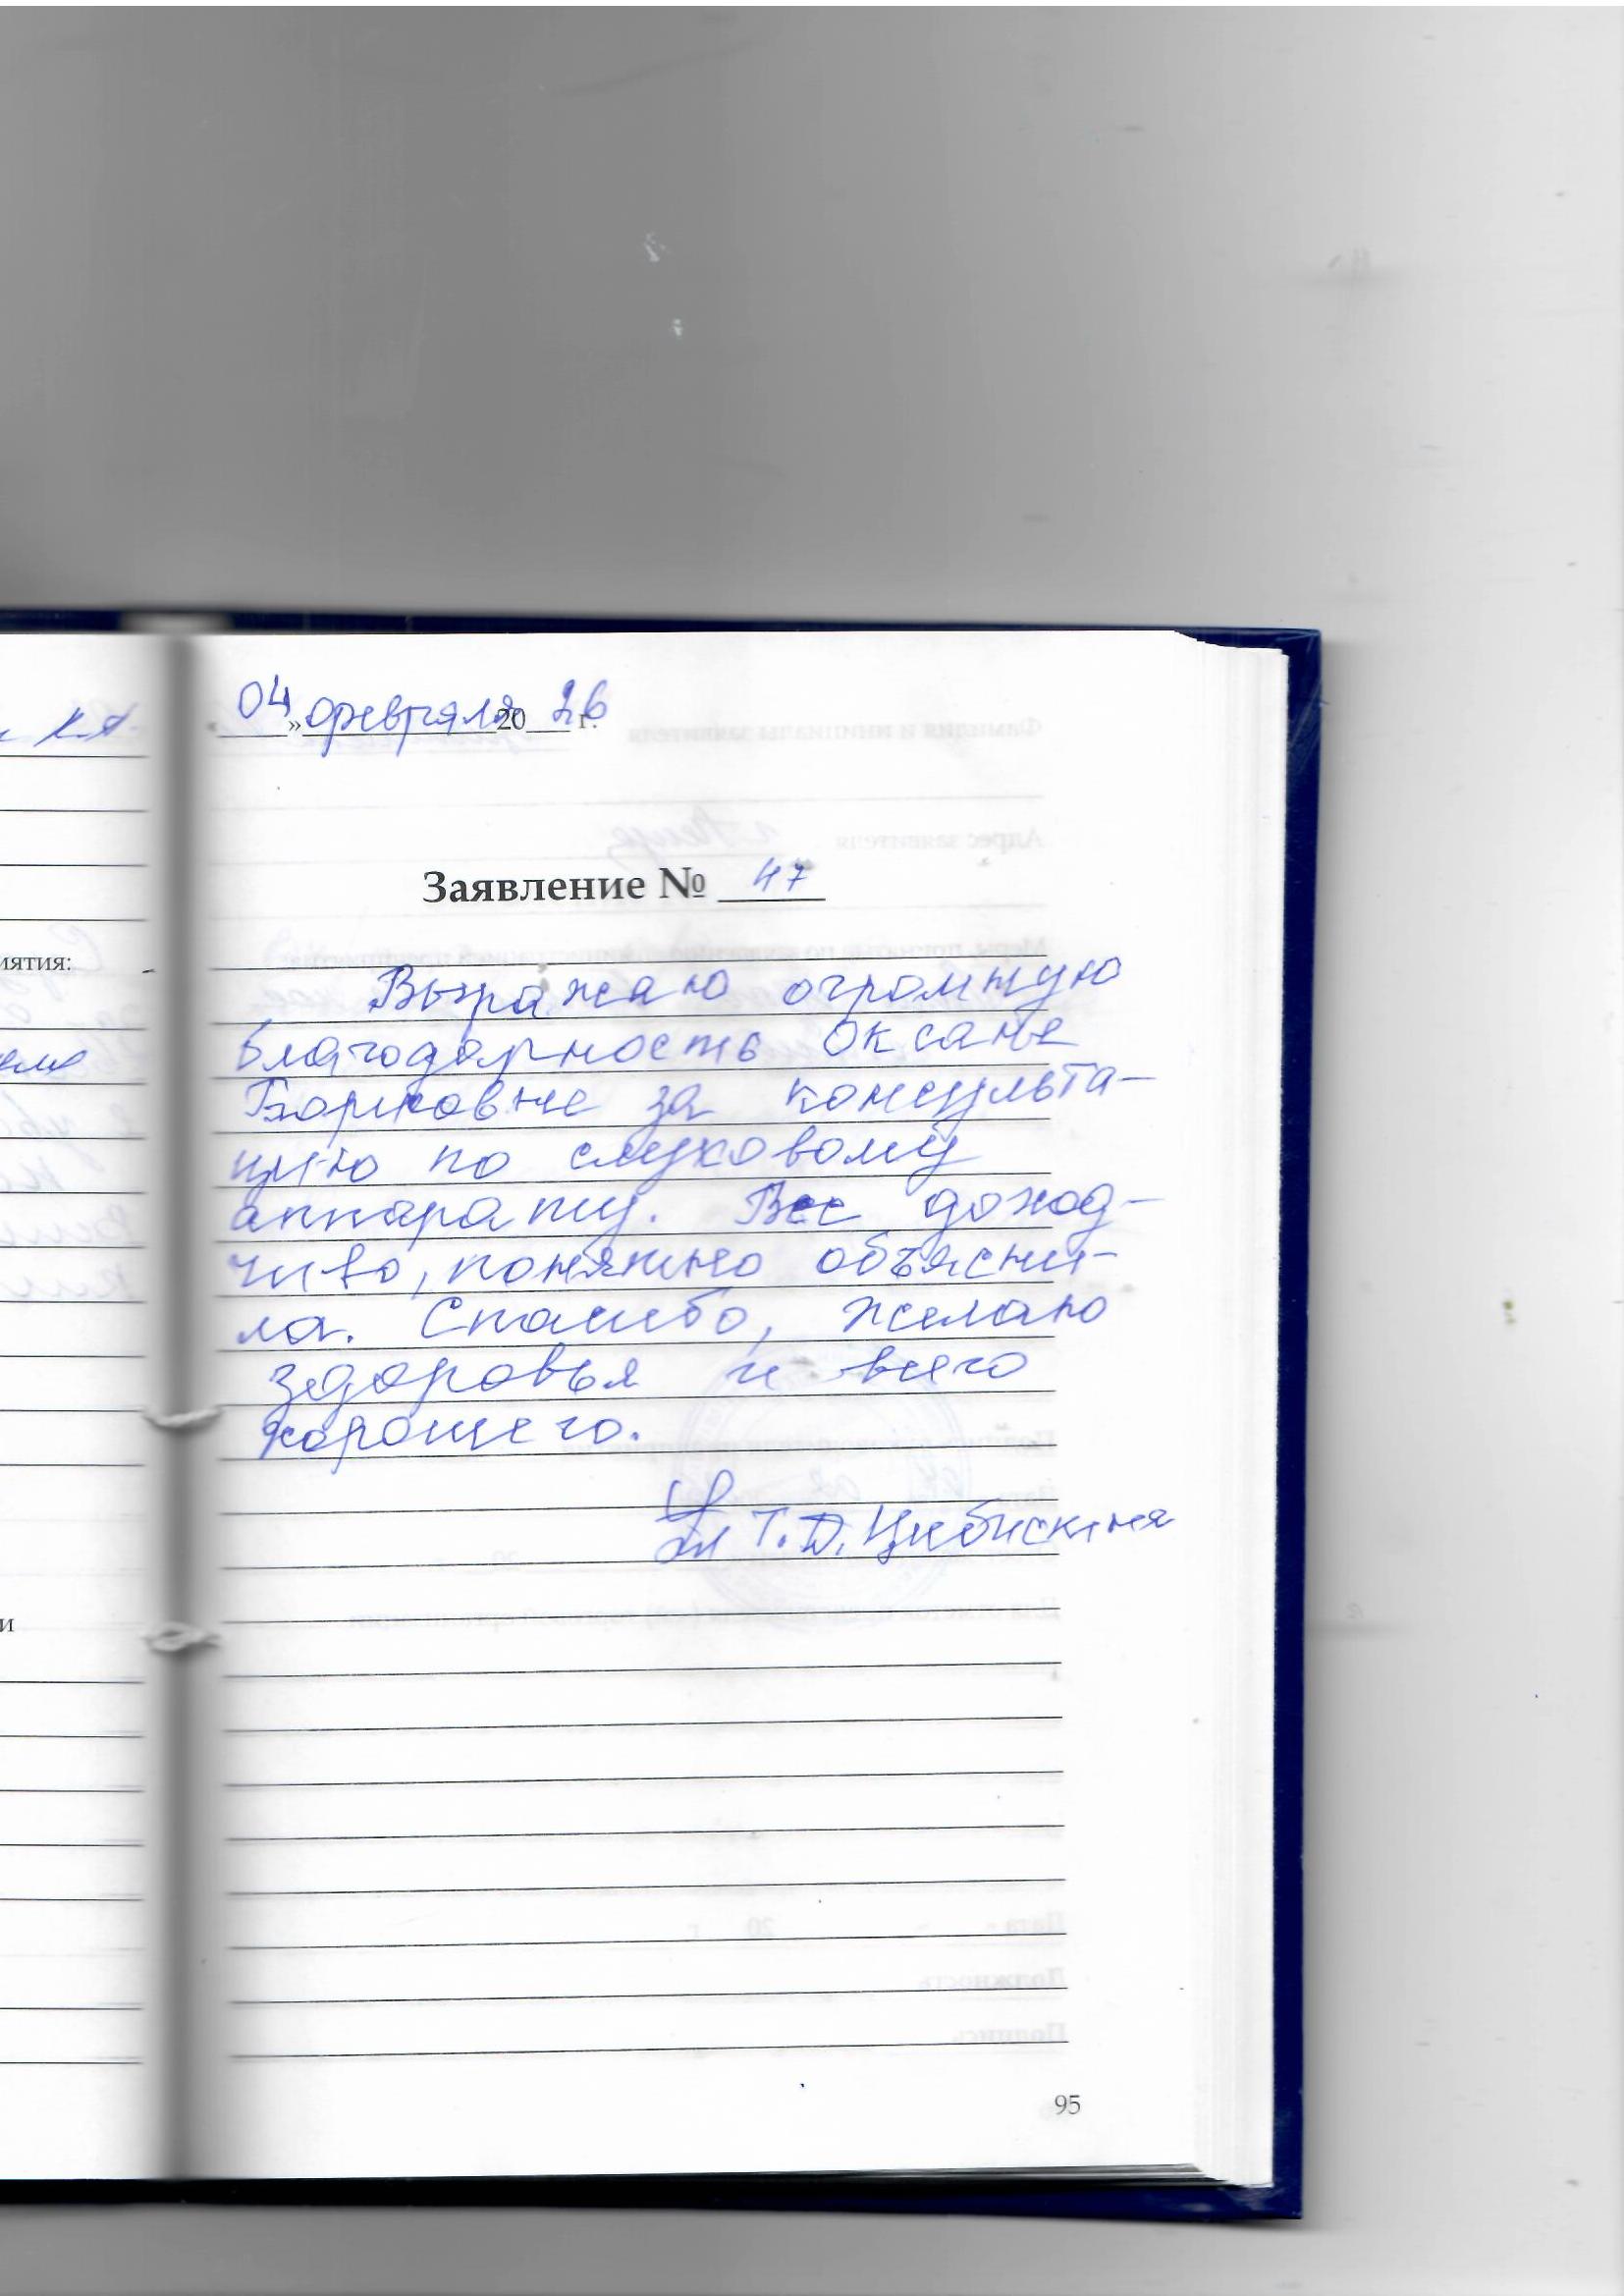 к А.
04 » февраля 20 26 г.
Заявление № 47
иятия:
Выражаю огромную
благодарность Оксане
Борисовне за консульта-
цию по слуховому
аппарату. Все доход-
чиво, понятно объясни-
ла. Спасибо, желаю
здоровья и всего
хорошего.
Т. Д.
и
95